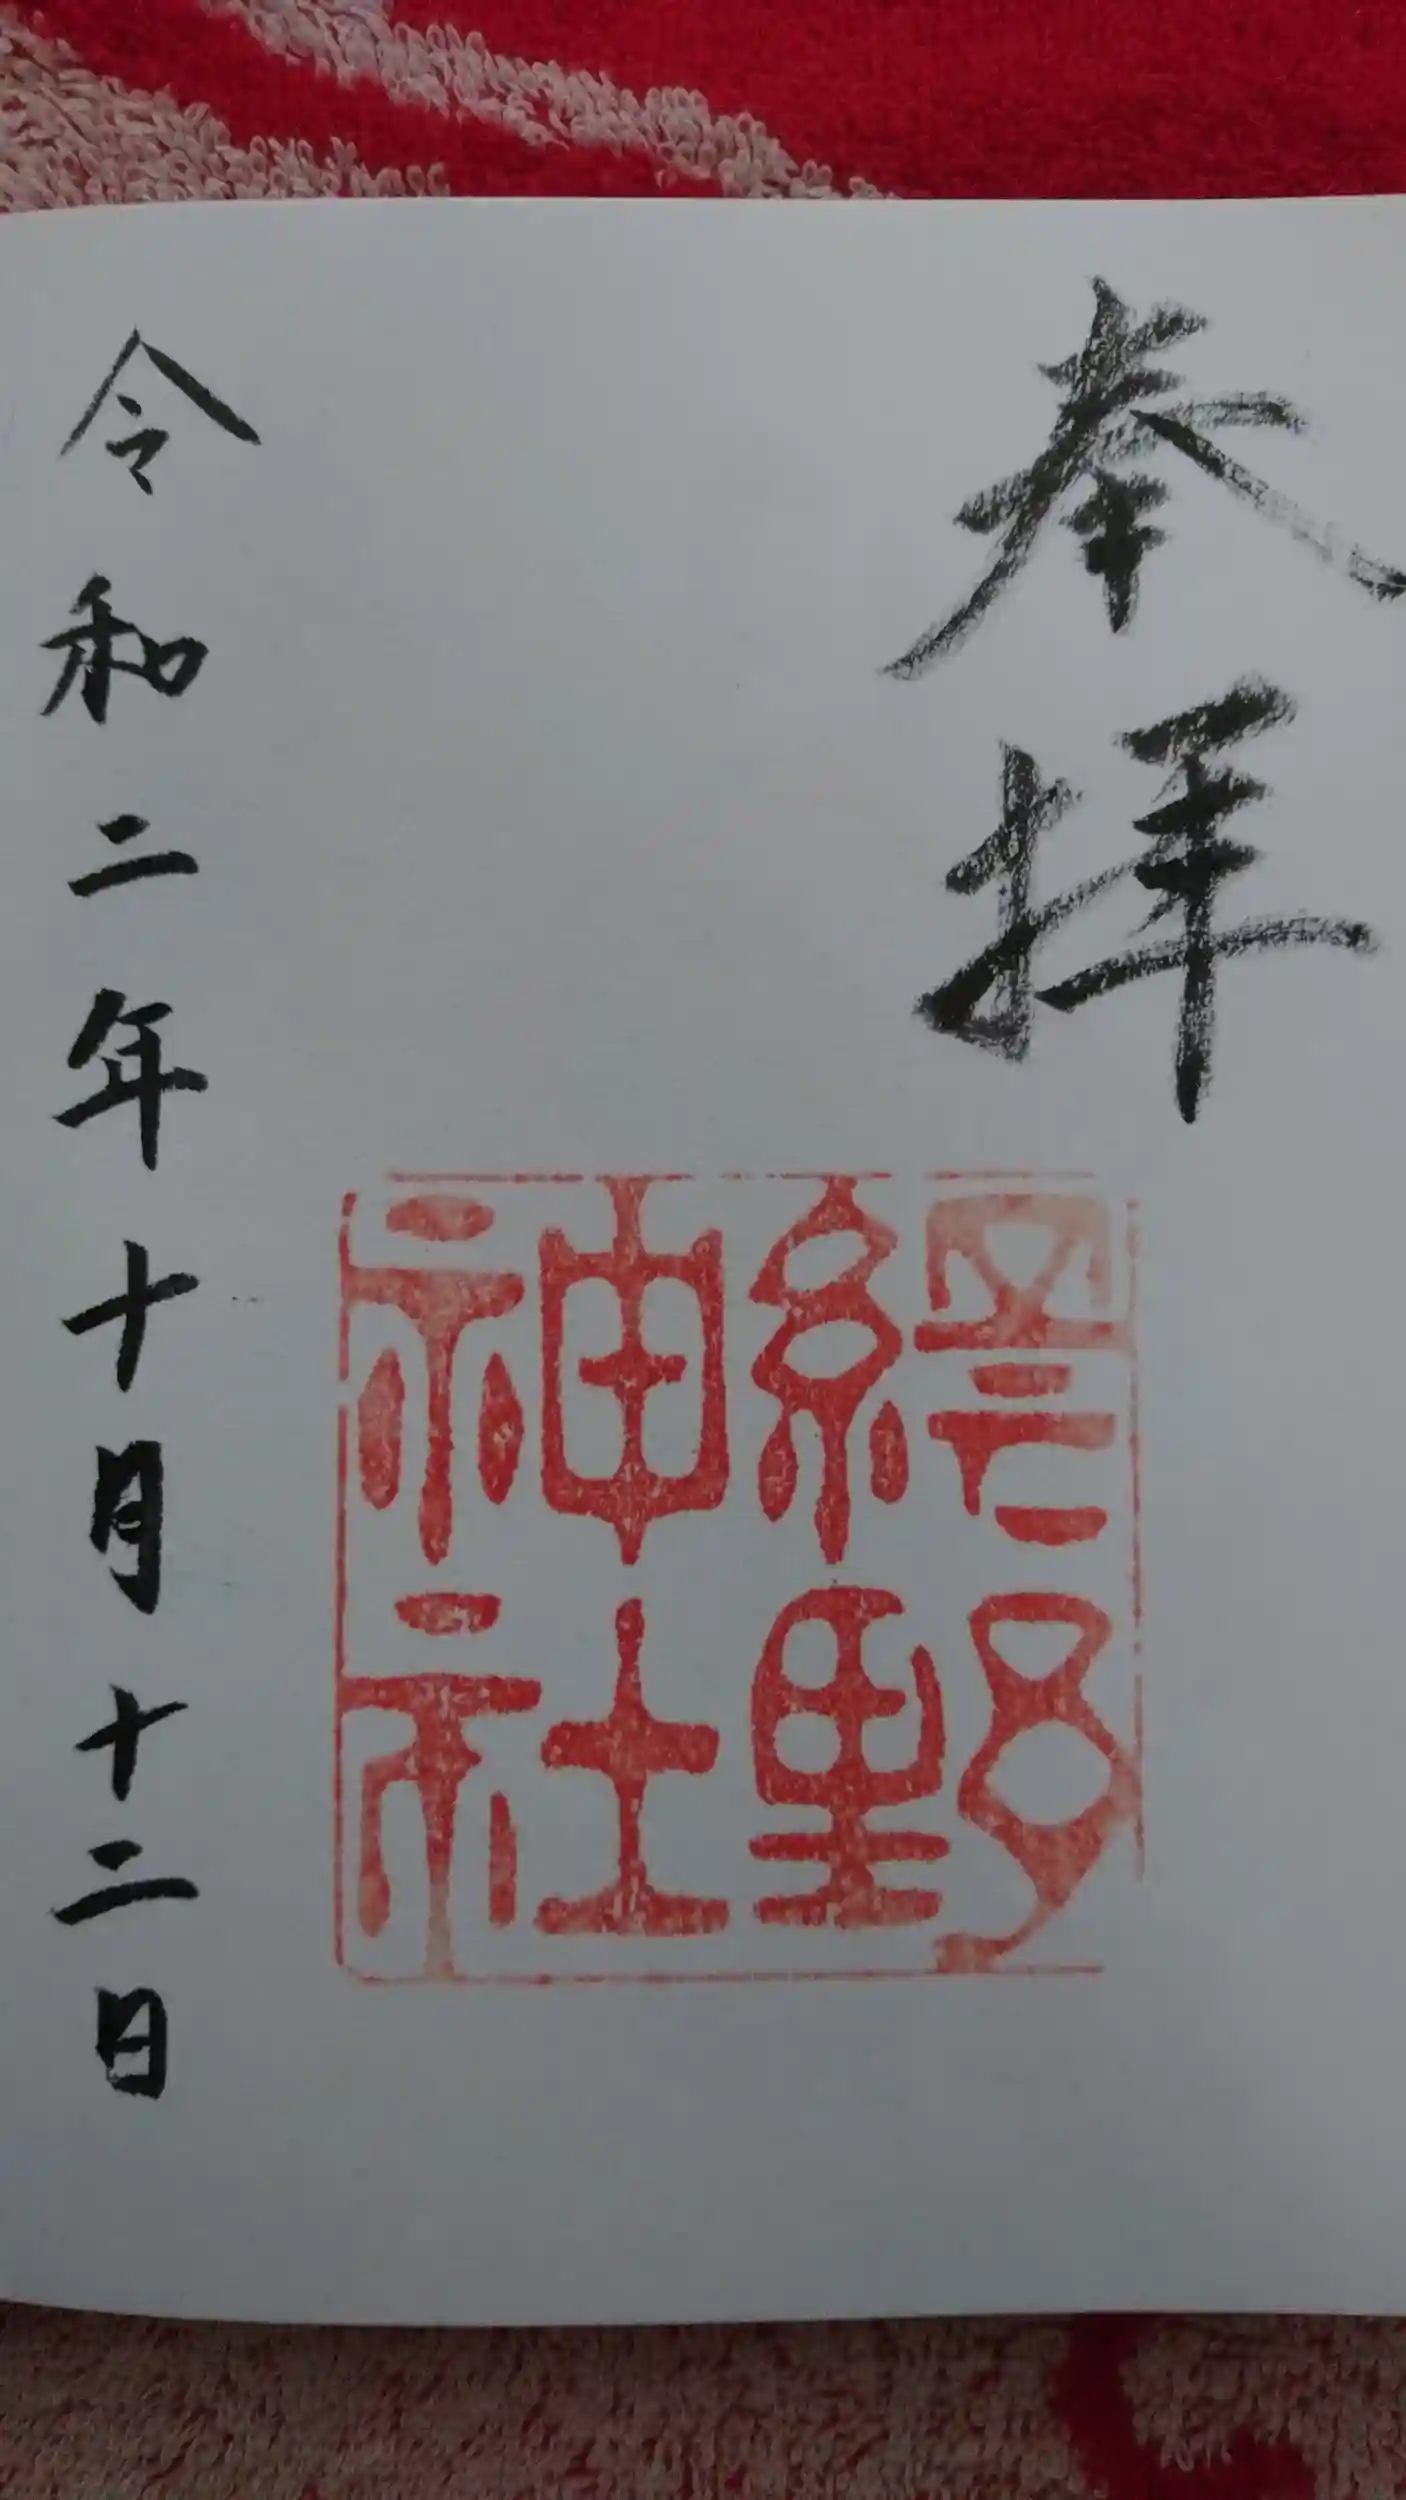 奉拝
網野神社
令和二年十月十二日